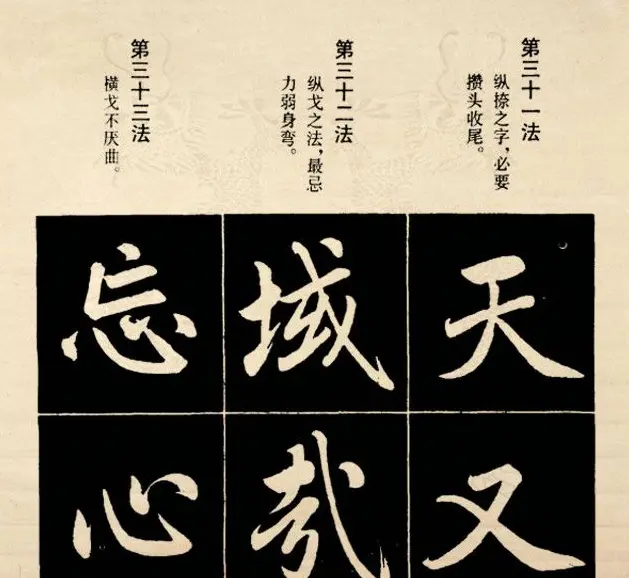 第三十一法
纵捺之字，必要
攒头收尾。
第三十二法
纵戈之法，最忌
力弱身弯。
第三十三法
横戈不厌曲。
天
又
域
哉
忘
心